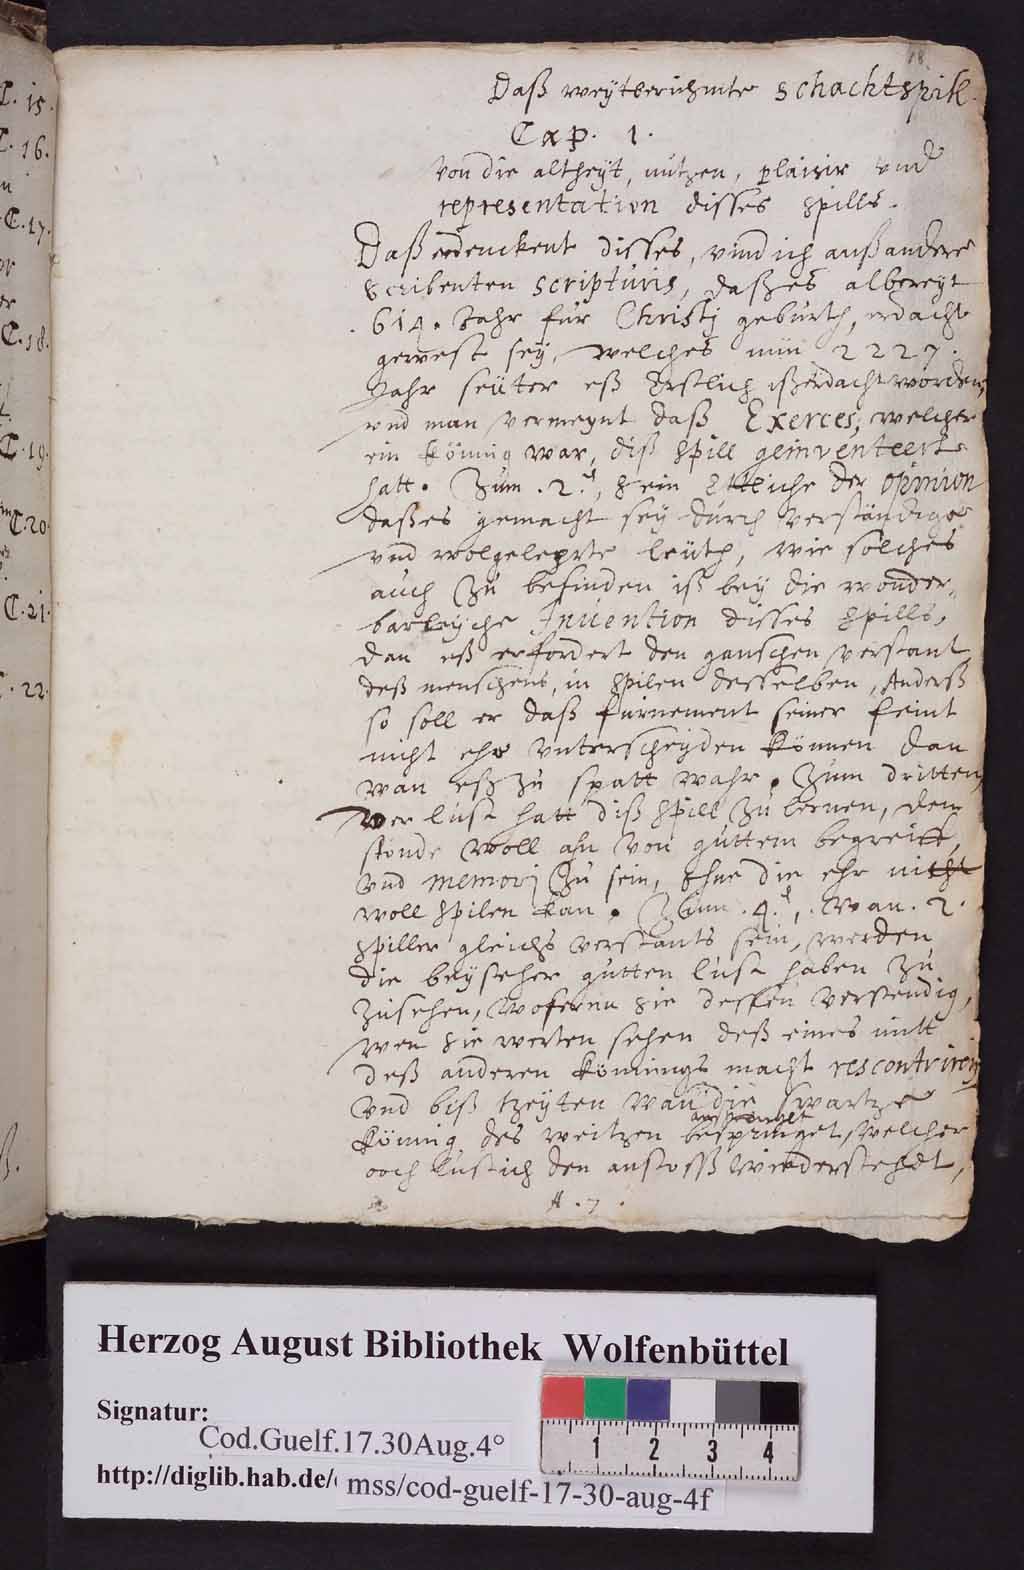 18.
Daß weÿtberühmte schachtspill.
Cap. 1.
Von die altheÿt, nutzen, plaisir vnd
representation disses spills.
Daß erdenckent disses, vind ich auß andere
scribenten scripturis, daß es albereÿt
.614. Jahr für Christj gebürth, erdacht
gewest seÿ, welches nun 2227.
Jahr seüter eß Erstlich iß erdacht worden,
vnd man vermeÿnt daß Exerces, welcher
ein könnig war, diß spill geinventeert
hatt. Zum .2.t, sein Ettliche der opinion
daß es gemacht seÿ durch verständige
vnd wolgelehrte leüth, wie solches
auch zu befinden iß beÿ die wonder-
barleÿche Invention disses spills,
dan eß erfordert den ganschen verstant
deß menschens, in spilen desselben, Anderß
so soll er daß fürnement seiner feint
nicht ehr vnterscheÿden können dan
wan eß zu spatt wahr. Zum dritten,
Wer lust hatt diß spill zu lernen, dem
stonde woll ahn von guttem begreiff,
vnd memorj zu sein, ohne die ehr nicht
woll spilen kan. Zum .4.t, Wan .2.
spiller gleichs verstants sein, werden
die beÿseher gutten lust haben zu
zusehen, wofernn sie dessen verstendig,
wen sie werten sehen deß eines mitt
deß anderen könnings macht rescontriren
vnd biß tzeÿten wan die swartze
könnig des weitzen bespringet, welcher
och lustich den anstoss wiederstehdt,
A. 7.
C. 15.
C. 16.
C. 17.
C. 18.
C. 19.
C. 20.
C. 21.
C. 22.
Herzog August Bibliothek Wolfenbüttel
Signatur:
Cod.Guelf.17.30Aug.4°
http://diglib.hab.de/
mss/cod-guelf-17-30-aug-4f
1 2 3 4